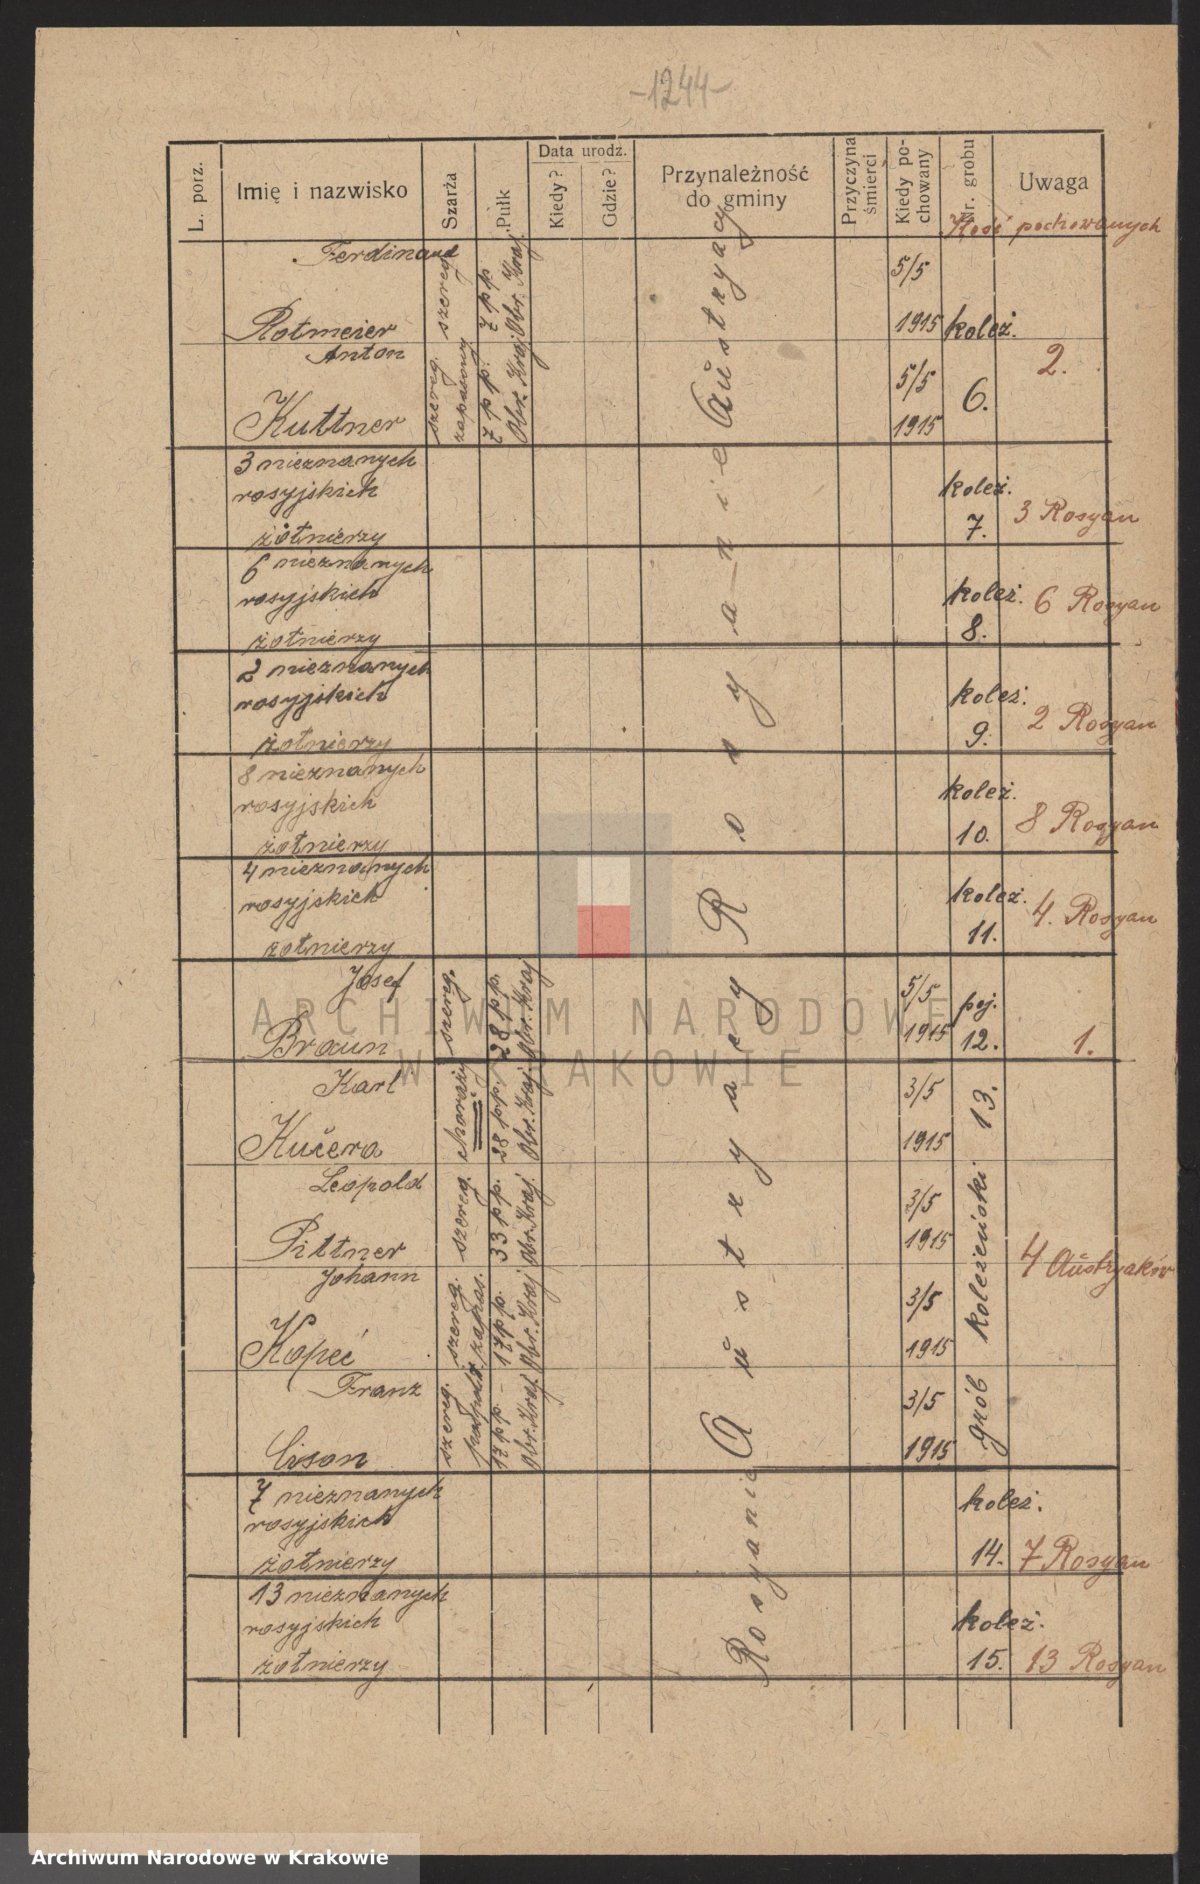 -1244-
L. porz.
Imię i nazwisko
Szarża
Pułk
Data urodz.
Kiedy?
Gdzie?
Przynależność
do gminy
Przyczyna
śmierci
Kiedy po-
chowany
Nr. grobu
Uwaga
Ilość pochowanych
Ferdinand
Rotmeier
szereg.
7 p p.
Obr. Kraj.
Austryacy
5/5
1915
Anton
Kuttner
szereg.
zapasowy
7 p p.
Obr. Kraj
5/5
1915
koleż.
6.
2.
3 nieznanych
rosyjskich
żołnierzy
Rosyanie
koleż.
7.
3 Rosyan
6 nieznanych
rosyjskich
żołnierzy
koleż.
8.
6 Rosyan
2 nieznanych
rosyjskich
żołnierzy
koleż.
9.
2 Rosyan
8 nieznanych
rosyjskich
żołnierzy
koleż.
10.
8 Rosyan
4 nieznanych
rosyjskich
żołnierzy
koleż.
11.
4. Rosyan
Josef
Braun
szereg.
28 p p.
Obr. Kraj
Austryacy
5/5
1915
poj.
12.
1.
Karl
Kučera
chorąży
28 p p.
Obr. Kraj.
3/5
1915
Leopold
Pittner
szereg.
33 p p.
Obr. Kraj.
3/5
1915
Johann
Kopeć
szereg.
zapas.
17 p p.
Obr. Kraj
3/5
1915
Franz
Cison
szereg.
17 p p
Obr. Kraj.
3/5
1915
grób koleżeński 13.
4 Austryaków
7 nieznanych
rosyjskich
żołnierzy
Rosyanie
koleż.
14.
7 Rosyan
13 nieznanych
rosyjskich
żołnierzy
koleż.
15.
13 Rosyan
ARCHIWUM NARODOWE
W KRAKOWIE
Archiwum Narodowe w Krakowie